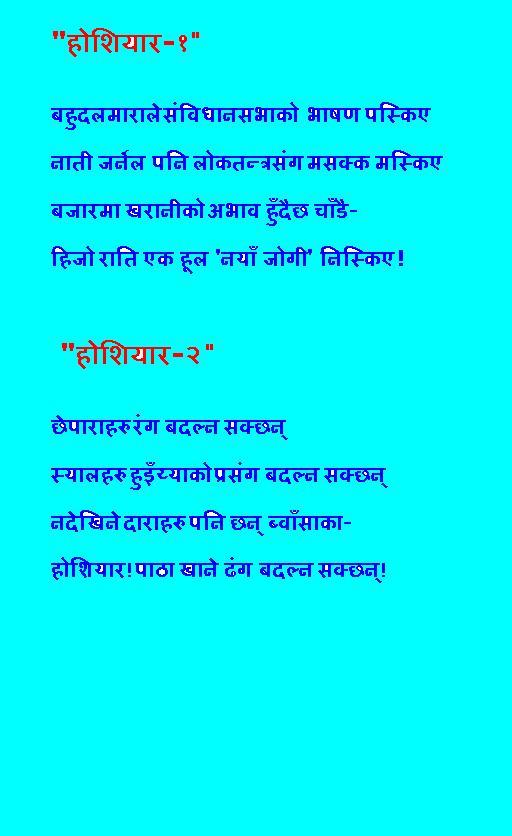 "होशियार-१"
बहुदलमारालेसंविधानसभाको भाषण पस्किए
नाती जर्नेल पनि लोकतन्त्रसंग मसक्क मस्किए
बजारमा खरानीको अभाव हुँदैछ चाँडै-
हिजो राति एक हूल 'नयाँ जोगी' निस्किए!
"होशियार-२"
छेपाराहरु रंग बदल्न सक्छन्
स्यालहरु हुइँय्याको प्रसंग बदल्न सक्छन्
नदेखिने दाराहरु पनि छन् ब्वाँसाका-
होशियार! पाठा खाने ढंग बदल्न सक्छन्!